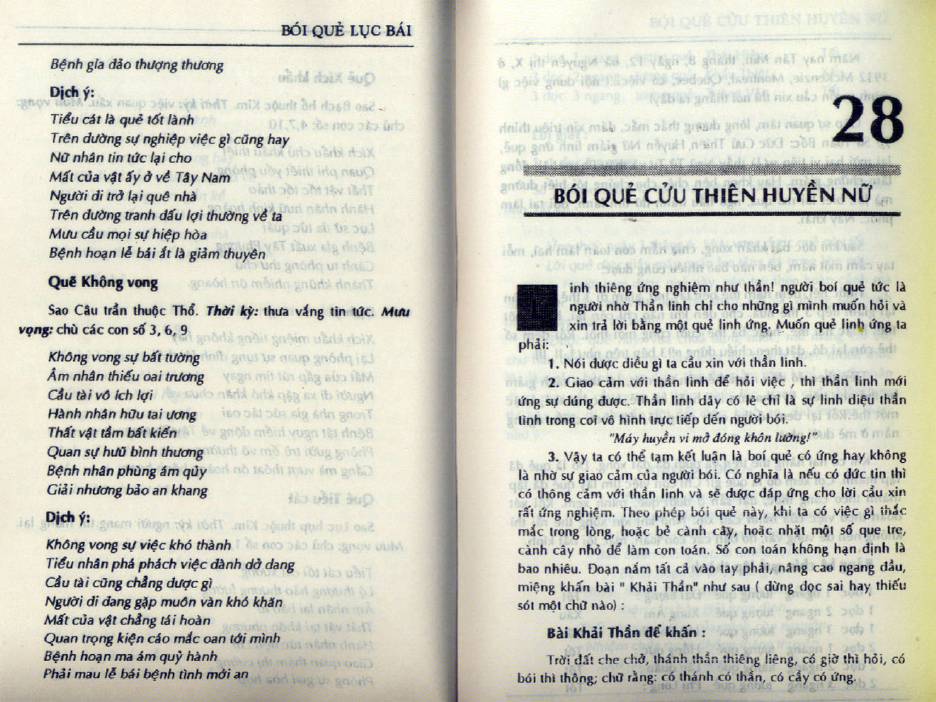 BÓI QUẺ LỤC BÁI
Bệnh gia đảo thượng thương
Dịch ý:
Tiểu cát là quẻ tốt lành
Trên đường sự nghiệp việc gì cũng hay
Nữ nhân tin tức lại cho
Mất của vật ấy ở về Tây Nam
Người đi trở lại quê nhà
Trên đường tranh đấu lợi thường về ta
Mưu cầu mọi sự hiệp hòa
Bệnh hoạn lễ bái ắt là giảm thuyên
Quẽ Không vong
Sao Câu trần thuộc Thổ. Thời kỳ: thưa vắng tin tức. Mưu
vọng: chủ các con số 3, 6, 9
Không vong sự bất tường
Âm nhân thiếu oai trương
Cầu tài vô ích lợi
Hành nhân hữu tai ương
Thất vật tầm bất kiến
Quan sự huũ bình thương
Bệnh nhân phùng ám qủy
Giải nhương bảo an khang
Dịch ý:
Không vong sự việc khó thành
Tiểu nhân phá phách việc đành dở dang
Cầu tài cũng chẳng được gì
Người đi đang gặp muôn vàn khó khăn
Mất của vật chẳng tái hoàn
Quan trọng kiện cáo mắc oan tới mình
Bệnh hoạn ma ám quỷ hành
Phải mau lễ bái bệnh tình mới an
28
BÓI QUẺ CỬU THIÊN HUYỀN NỮ
inh thiêng ứng nghiệm như thần! người boí quẻ tức là
người nhờ Thần linh chỉ cho những gì mình muốn hỏi và
xin trả lời bằng một quẻ linh ứng. Muốn quẻ linh ứng ta
phải:
1. Nói được điều gì ta cầu xin với thần linh.
2. Giao cảm với thần linh để hỏi việc , thì thần linh mới
ứng sự đúng được. Thần linh đây có lẽ chỉ là sự linh diệu thần
linh trong coĩ vô hình trực tiếp đến người bói.
"Máy huyền vi mở đóng khôn lường!"
3. Vậy ta có thể tạm kết luận là boí quẻ có ứng hay không
là nhờ sự giao cảm của người bói. Có nghĩa là nếu có đức tin thì
có thông cảm với thần linh và sẽ được đáp ứng cho lời cầu xin
rất ứng nghiệm. Theo phép bói quẻ này, khi ta có việc gì thắc
mắc trong lòng, hoặc bẻ cành cây, hoặc nhặt một số que tre,
cành cây nhỏ để làm con toán. Số con toán không hạn định là
bao nhiêu. Đoạn nắm tất cả vào tay phải, nâng cao ngang đầu,
miệng khấn bài " Khải Thần" như sau ( đừng đọc sai hay thiếu
sót một chữ nào) :
Bài Khải Thần để khấn :
Trời đất che chở, thánh thần thiêng liêng, có giờ thì hỏi, có
bói thì thông; chữ rằng: có thánh có thần, có cầy có ứng.